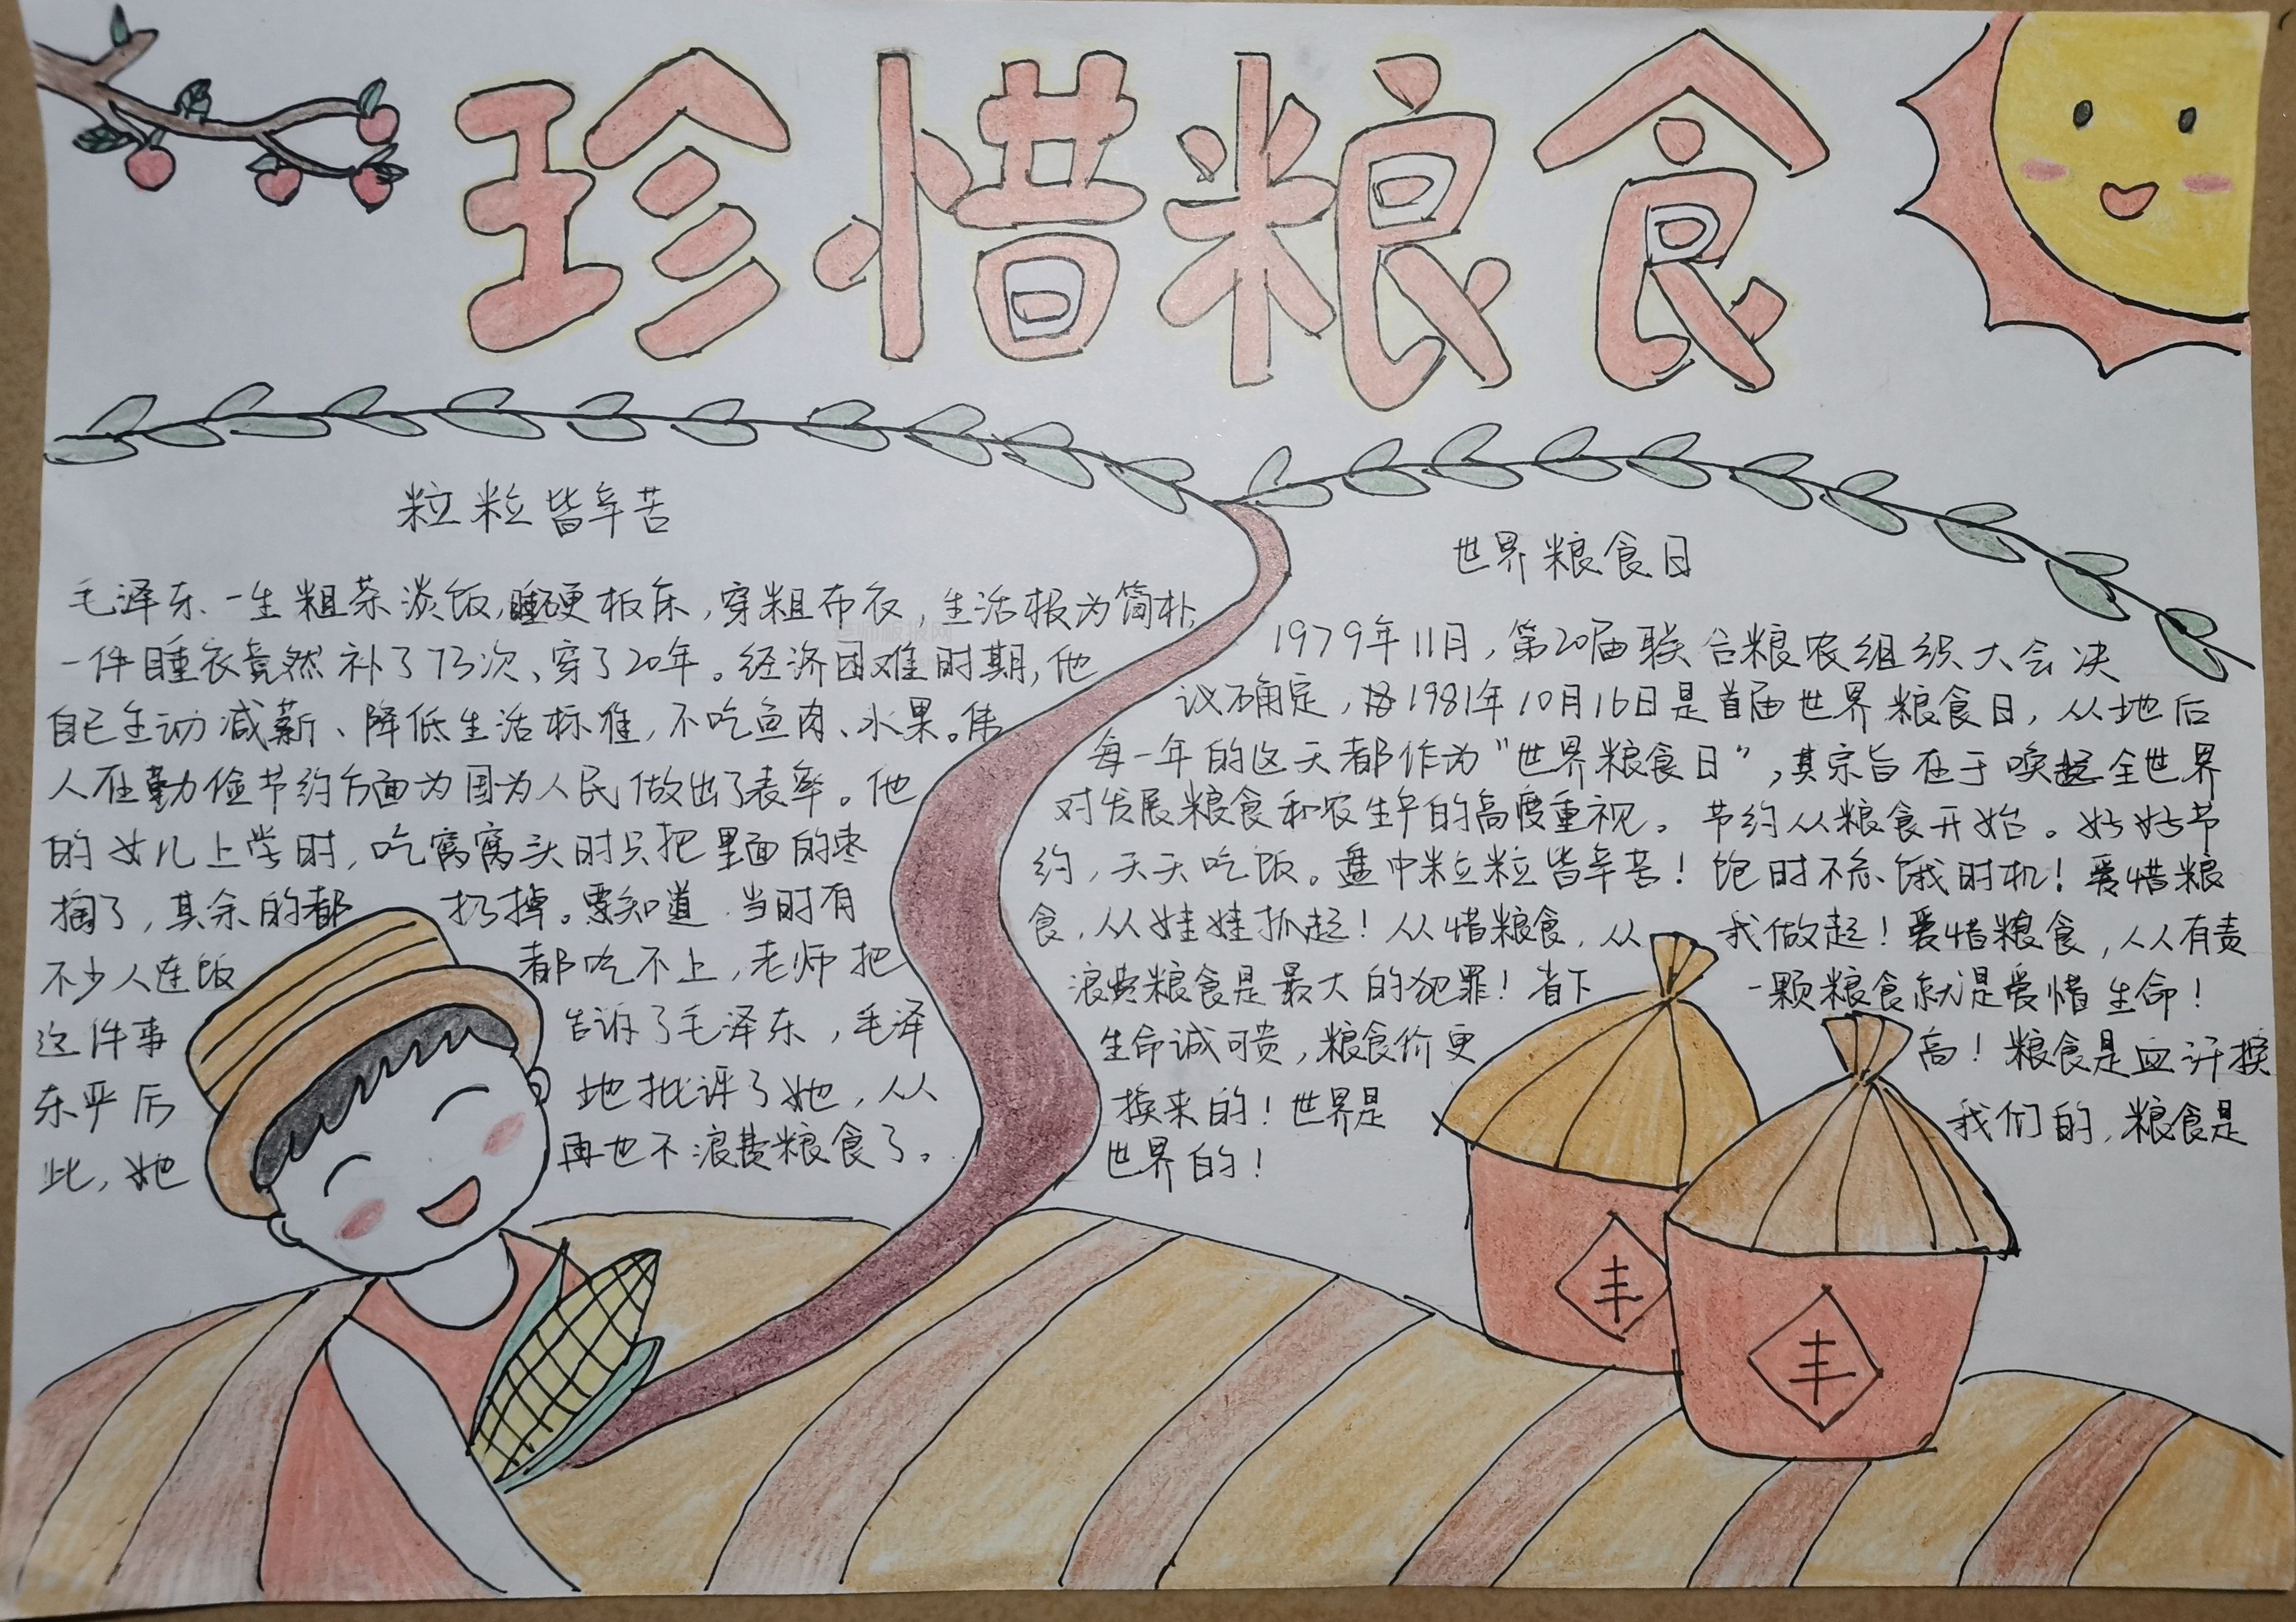 珍惜粮食
粒粒皆辛苦
毛泽东一生粗茶淡饭,睡硬板床,穿粗布衣,生活极为简朴,
一件睡衣竟然补了73次、穿了20年。经济困难时期,他
自己主动减薪、降低生活标准,不吃鱼肉、水果。伟
人在勤俭节约方面为国为人民做出了表率。他
的女儿上学时,吃窝窝头时只把里面的枣
掏了,其余的都扔掉。要知道 当时有
不少人连饭都吃不上,老师把
这件事告诉了毛泽东,毛泽
东严厉地批评了她,从
此,她再也不浪费粮食了。
世界粮食日
1979年11月,第20届联合粮农组织大会决
议确定,将1981年10月16日是首届世界粮食日,从地后
每一年的这天都作为“世界粮食日”,其宗旨在于唤起全世界
对发展粮食和农生午的高度重视。节约从粮食开始。好好节
约,天天吃饭。盘中粒粒皆辛苦!饱时不忘饿时机!爱惜粮
食,从娃娃抓起!从惜粮食,从我做起!爱惜粮食,人人有责
浪费粮食是最大的犯罪!省下一颗粮食就是爱惜生命!
生命诚可贵,粮食价更高!粮食是血汗换
换来的!世界是我们的,粮食是
世界的!
丰
丰